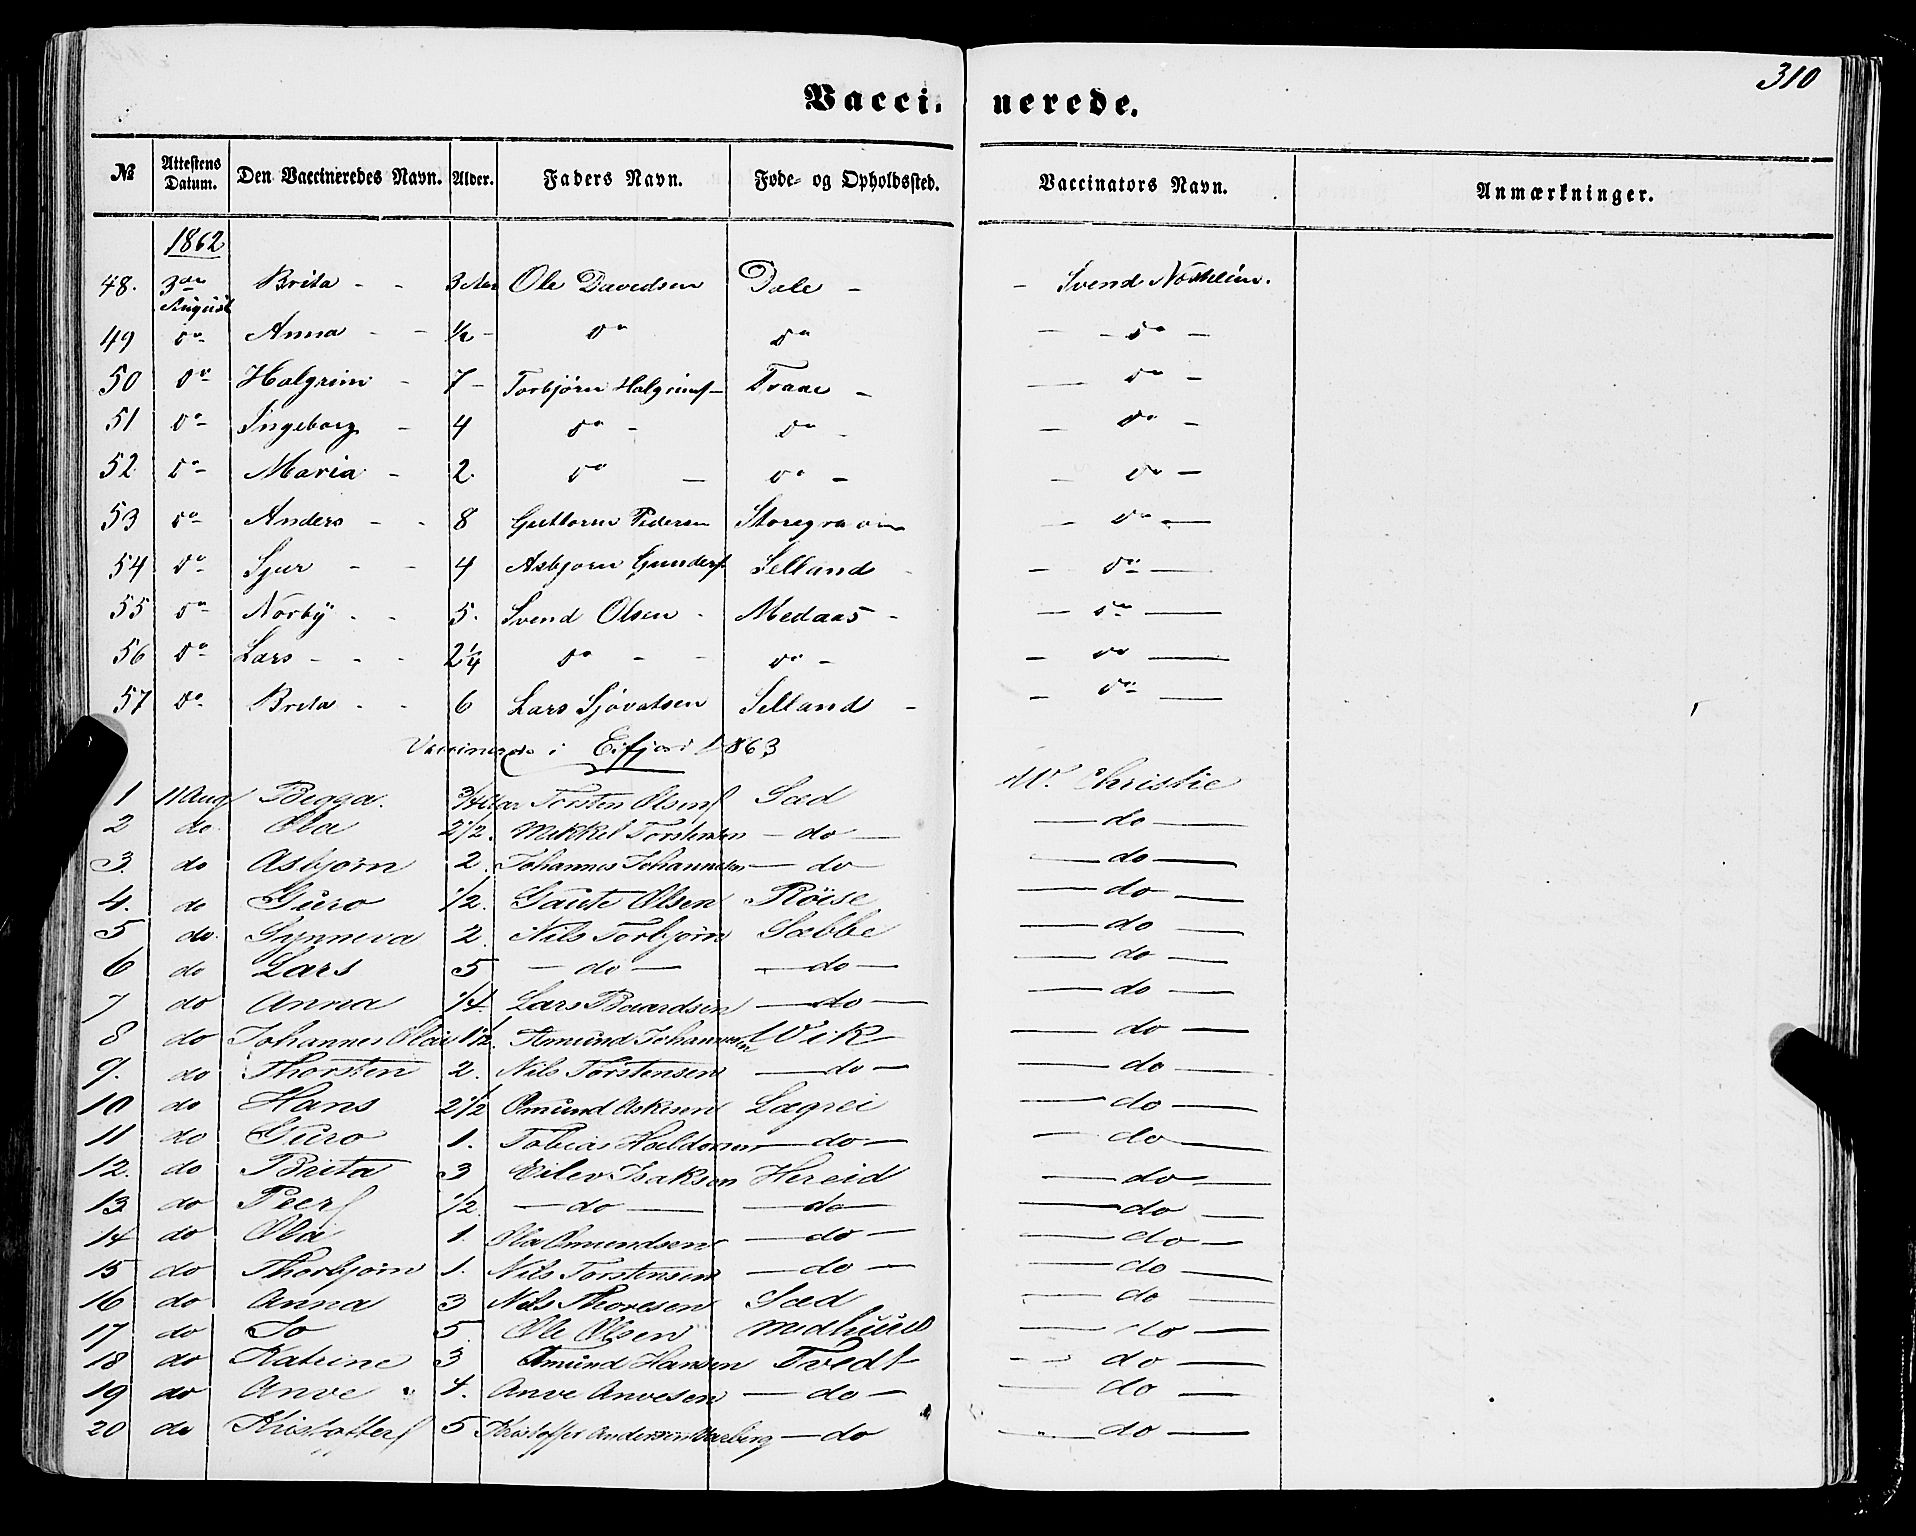 310
Vaccinerede.
№ Attestens Datum. Den Vaccineredes Navn. Alder. Faders Navn. Føde- og Opholdssted. Vaccinators Navn. Anmærkninger.
1862
48. 3die August Brita - - 3 Aar Ole Davedsen Dale - - Svend
49 do Anna - - ½ - do do - - do -
50 do Halgrim - 7 - Torbjörn Halgrims - Traae - - do -
51 do Ingeborg - 4 do - do - - do -
52. do Maria - 2. do - do - - do -
53 do Anders - - 8 Guttorm Pedersen - do -
54 do Sjur - - 4 Asbjorn Gunders. Selland - - do -
55 do Norby - - 5. Svend Olsen - Medaas - - do -
56 do Lars - - - 2¼ do - - do - - do -
57 do Brita - - 6 Lars Sjovatsen Selland - - do -
Vaccinerede i Eifjord 1863
1 11 Aug Begga. 3/4 Aar Torsten Olsen Sæd W. Christie
2 do Ola 2½. Mikkel Torstensen - do - - do -
3. do Asbjørn 2. Johannes Johannesen - do - do -
4. do Guro ½. Gaute Olsen Röise - do -
5 do. Synneva 2. Nils Torbjørn Sæbbe - do -
6 do Lars 5 - do - - do - - do -
7 do Anna ¼. Lars Baardsen - do - - do -
8 do Johannes Olai 1½. Amund Johannessen Wik - do -
9. do Thorsten 2. Nils Torstensen - do - - do -
10 do Hans 2½ Omund Askesen Lægrei - do -
11 do Guro 1. Tobias Haldorsen - do - - do -
12. do Brita 3 Eilev Isaksen Hereid - do -
13 do Peer ½. - do - - do - - do -
14 do Ola 1. Ola Omundsen - do - - do -
15 do Thorbjørn 1. Nils Torstensen - do - - do -
16 do Anna 3 Nils Thoresen Sæd - do -
17 do Jo 5. Ole Olsen Medhuus - do -
18 do Katrine 3 Amund Hansen Tvedt - do -
19 do Anve 4. Anve Anvesen - do - - do -
20 do Kristoffer 5 Kristoffer Andersen - do - do -